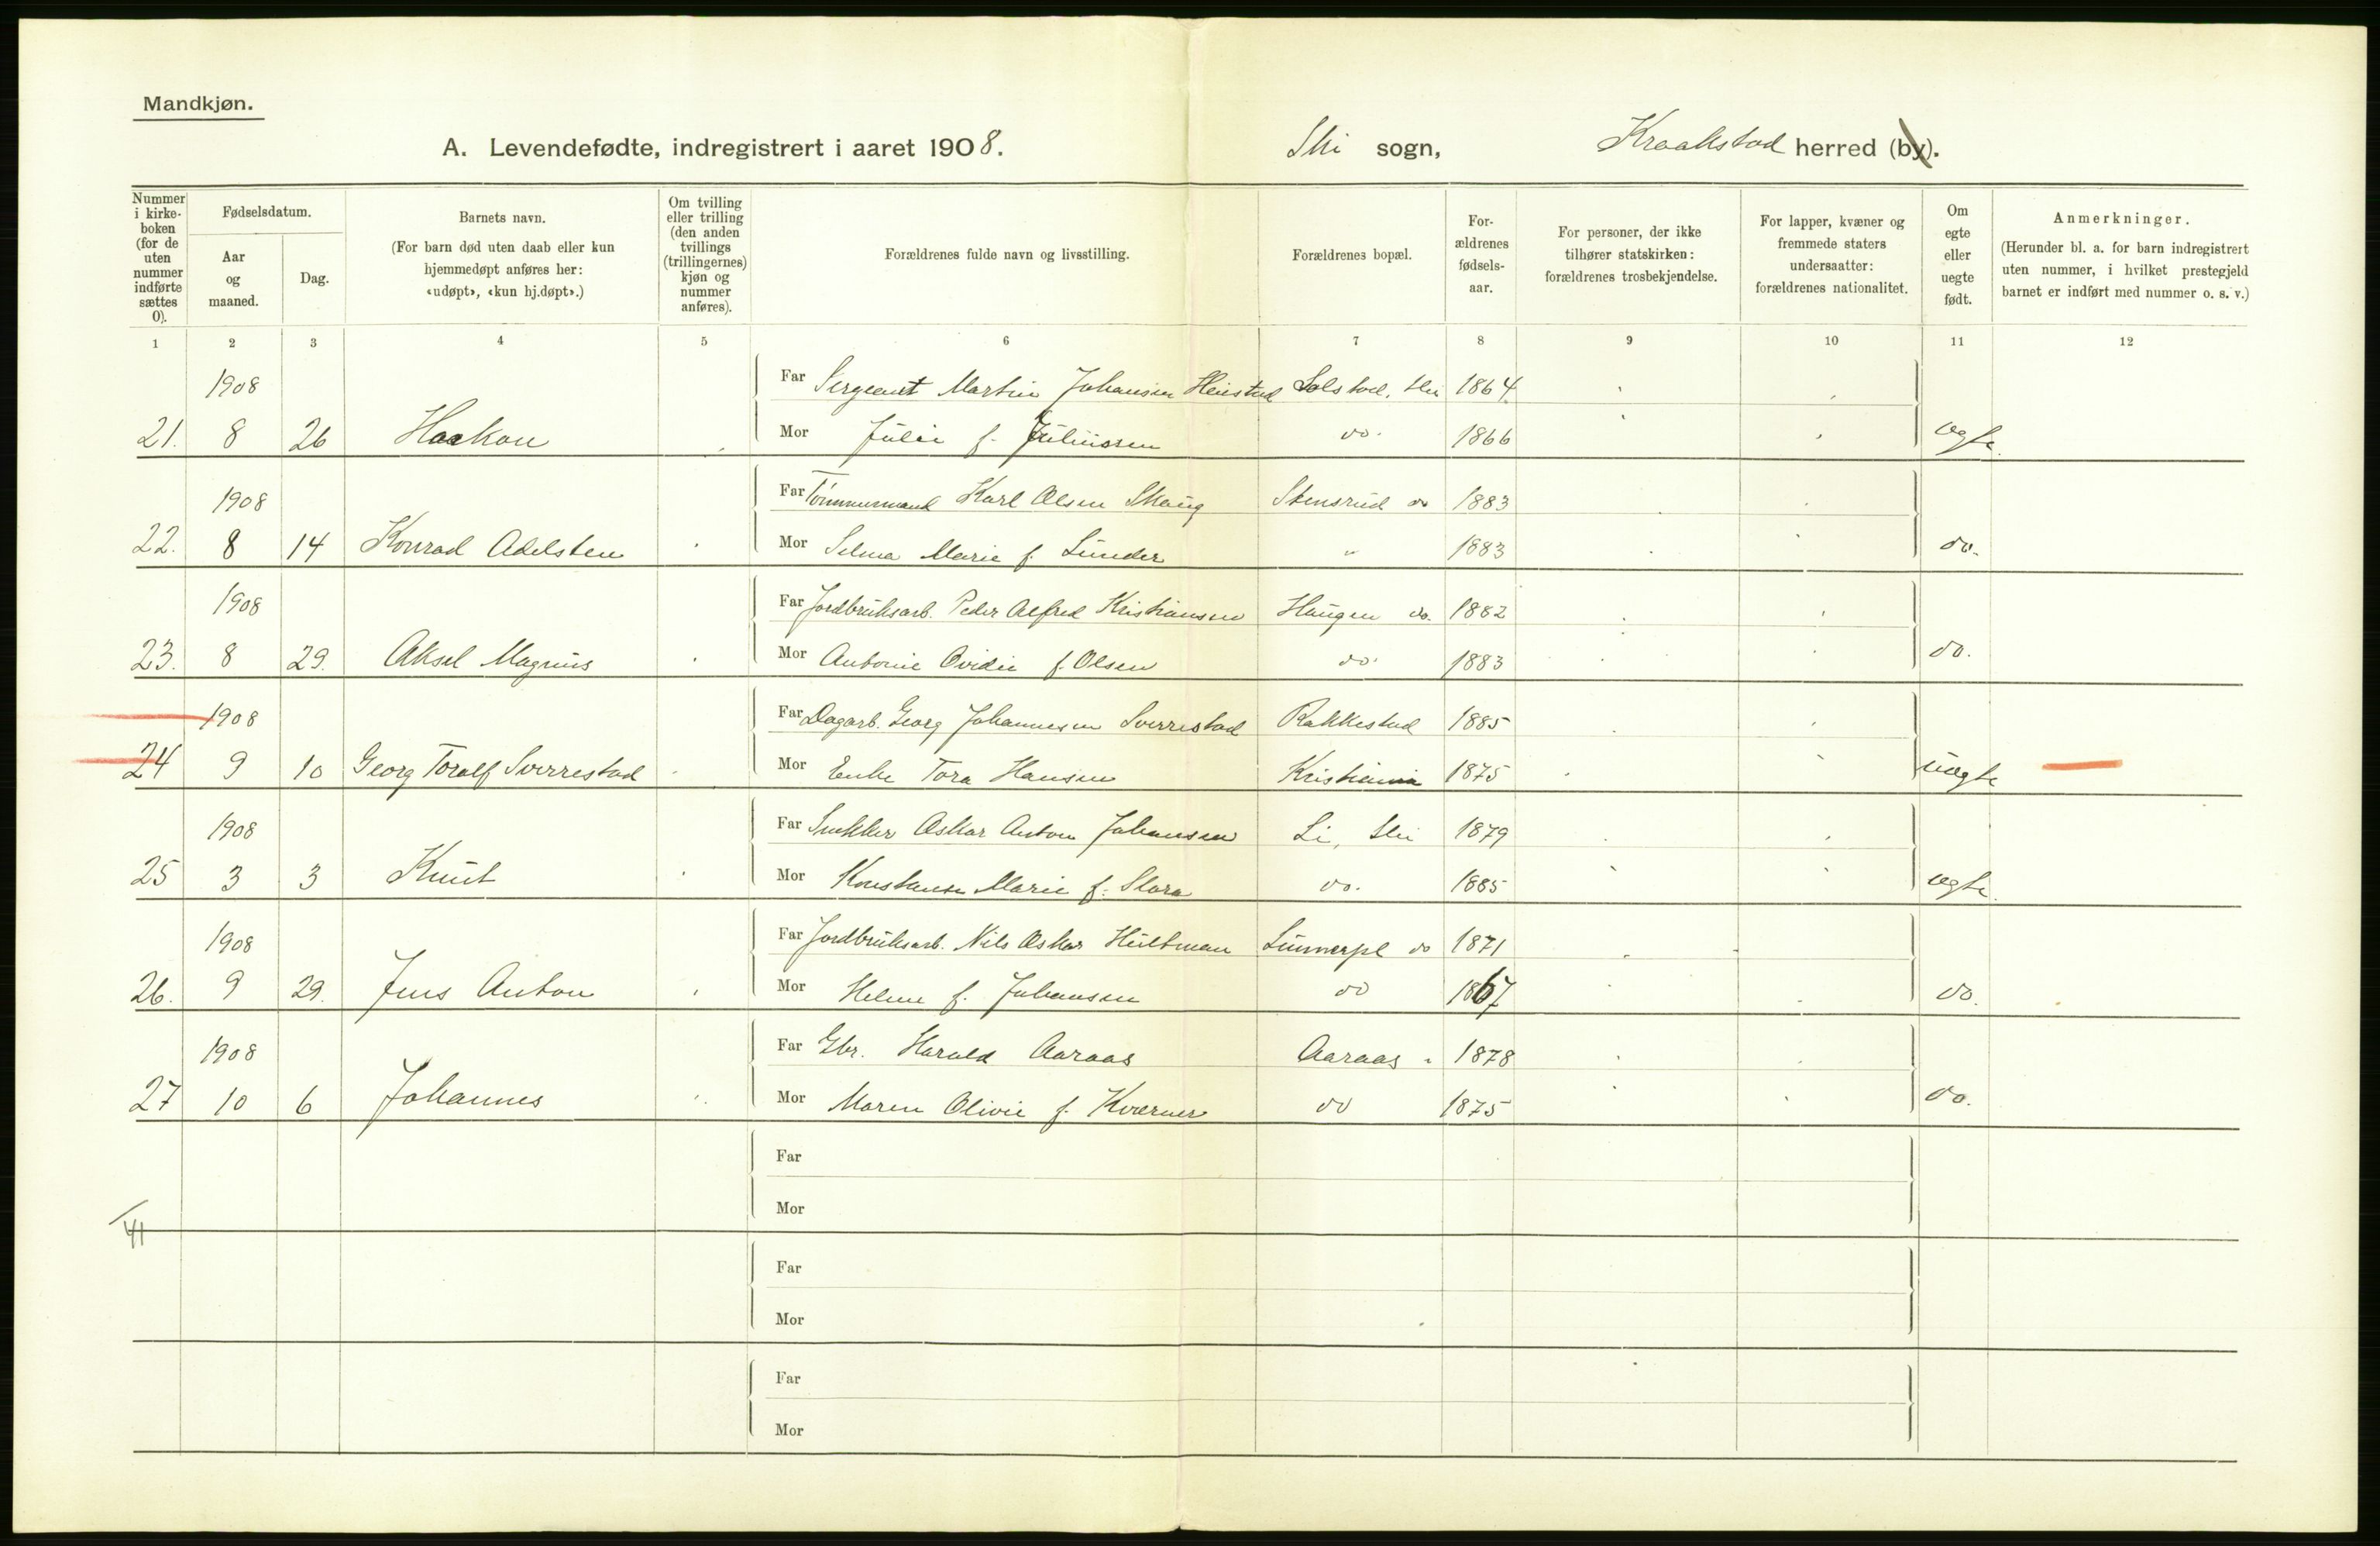 Mandkjøn.
A. Levendefødte, indregistrert i aaret 1908. Ski sogn, Kraakstad herred (by).
Nummer i kirke-boken (for de uten nummer indførte sættes 0).
Fødselsdatum.
Aar og maaned.
Dag.
Barnets navn.
(For barn død uten daab eller kun hjemmedøpt anføres her: «udøpt», «kun hj.døpt».)
Om tvilling eller trilling (den anden tvillings (trillingernes) kjøn og nummer anføres).
Forældrenes fulde navn og livsstilling.
Forældrenes bopæl.
For-ældrenes fødsels-aar.
For personer, der ikke tilhører statskirken: forældrenes trosbekjendelse.
For lapper, kvæner og fremmede staters undersaatter: forældrenes nationalitet.
Om egte eller uegte født.
Anmerkninger.
(Herunder bl. a. for barn indregistrert uten nummer, i hvilket prestegjeld barnet er indført med nummer o. s. v.)
1 2 3 4 5 6 7 8 9 10 11 12
1908 Far Sergeant Martin Johansen Heistad Solstad, Ski 1864
21. 8 26 Haakon Mor Julie f. Juliussen do. 1866 egte
1908 Far Tømmermand Karl Olsen Skaug Stensrud do 1883
22. 8 14 Konrad Adelsten Mor Selma Marie f. Sunder " 1883 do.
1908 Far Jordbruksarb. Peder Alfred Kristiansen Haugen do. 1882
23. 8 29. Aksel Magnus Mor Antonie Ovidie f. Olsen do. 1883 do.
1908 Far Dagarb. Georg Johannesen Sverrestad Rakkestad 1885
24 9 10 Georg Toralf Sverrestad Mor Enke Tora Hansen Kristiania 1875 uegte
1908 Far Snekker Oskar Anton Johansen Li, Ski 1879
25 3 3 Knut Mor Konstanse Marie f. Slora do. 1885 egte
1908 Far Jordbruksarb. Nils Oskar Hultman do 1871
26. 9 29. Jens Anton Mor Helene f. Johansen do 1867 do.
1908 Far Gbr. Harald Aaraas Aaraas " 1878
27 10 6 Johannes Mor Maren Olivie f. Kværner do 1875 do.
Far
Mor
Far
Mor
Far
Mor